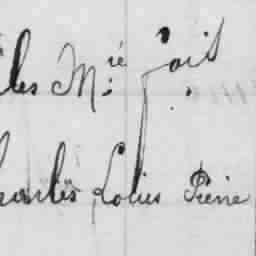 les M.ié
harles Louis Pierre